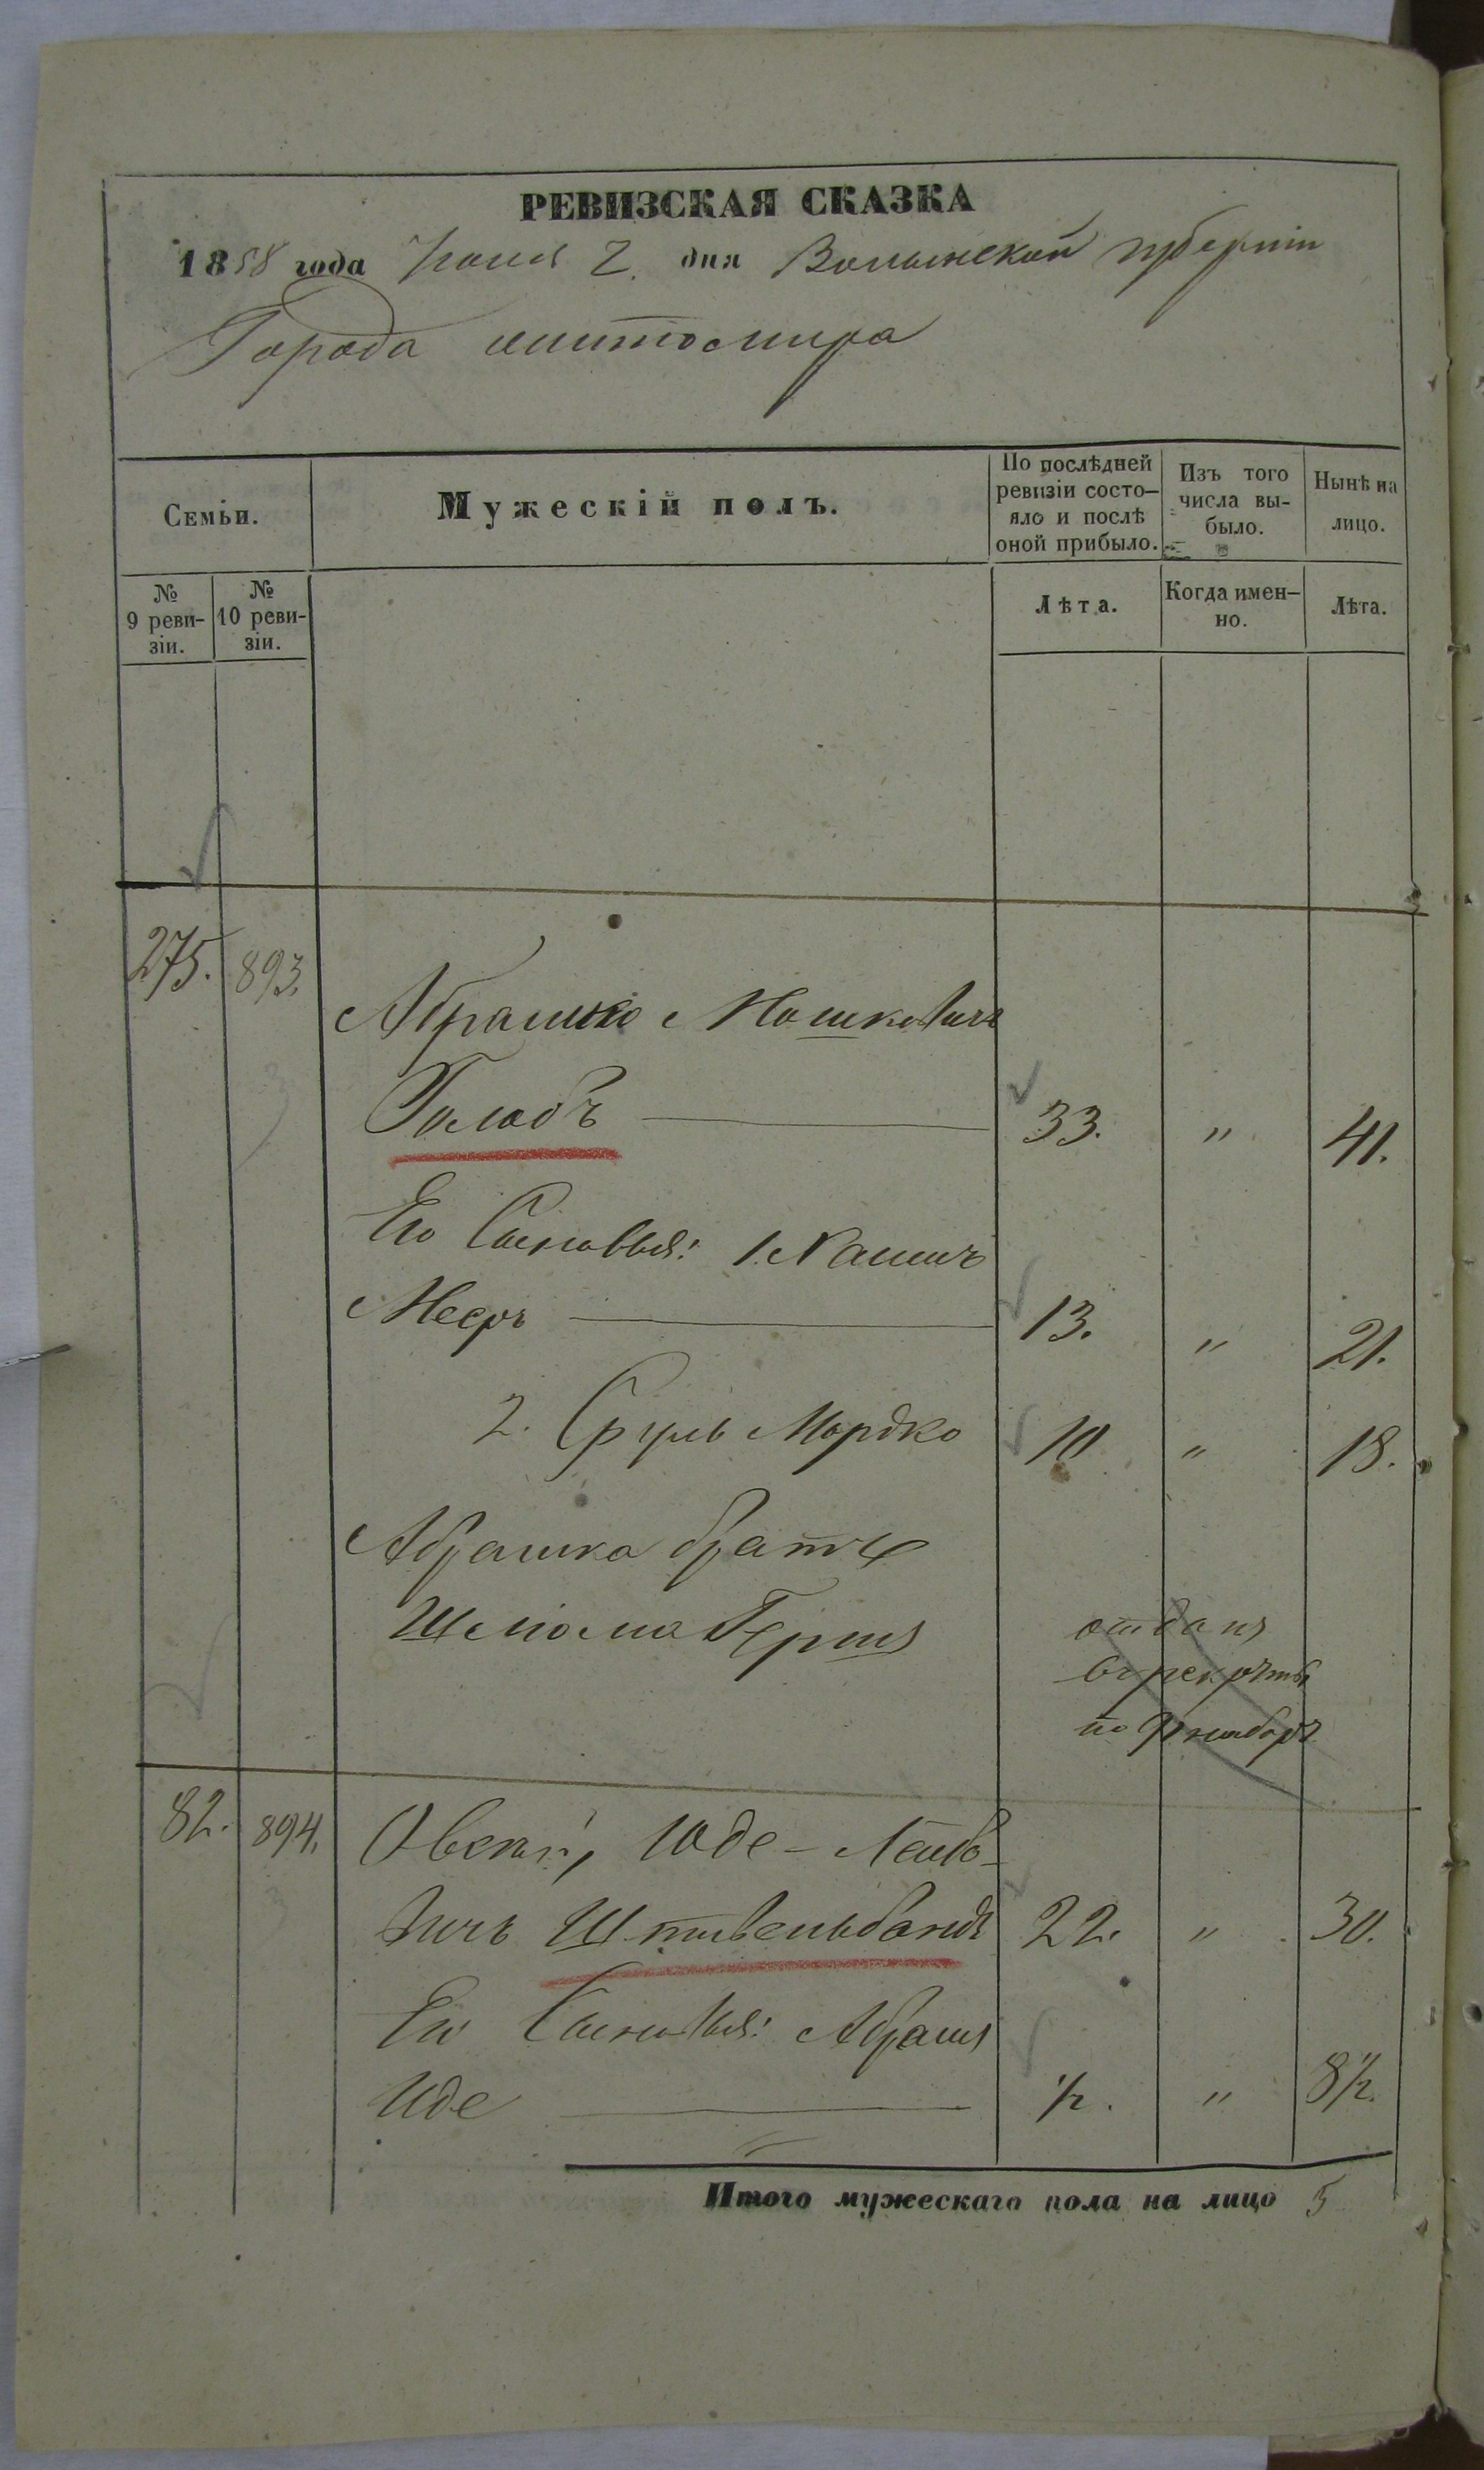 РЕВИЗСКАЯ СКАЗКА
1858 года Іюня 2. дня Волынской губерніи
Города Житомира
Семьи.
Мужескій полъ.
По послѣдней ревизіи состо-
яло и послѣ
оной прибыло.
Изъ того
числа вы-
было.
Нынѣ на
лицо.
№
9 реви-
зіи.
№
10 реви-
зіи.
Лѣта.
Когда имен-
но.
Лѣта.
275. 893.
Абрашко Мошковичъ
Голобъ 33. " 41.
Его Сыновья: 1. Хаимъ
Мееръ 13. " 21.
2. Сруль Мордко 10 " 18.
Абрашка братъ
Шліома Гершъ отданъ
въ рекруты
по наборъ
82. 894. Овсей, Юде-Лейбо-
вичъ Штивельбандъ 22. " 30.
Его Сыновья: Абрамъ
Иде ½. " 8½.
Итого мужескаго пола на лицо 5